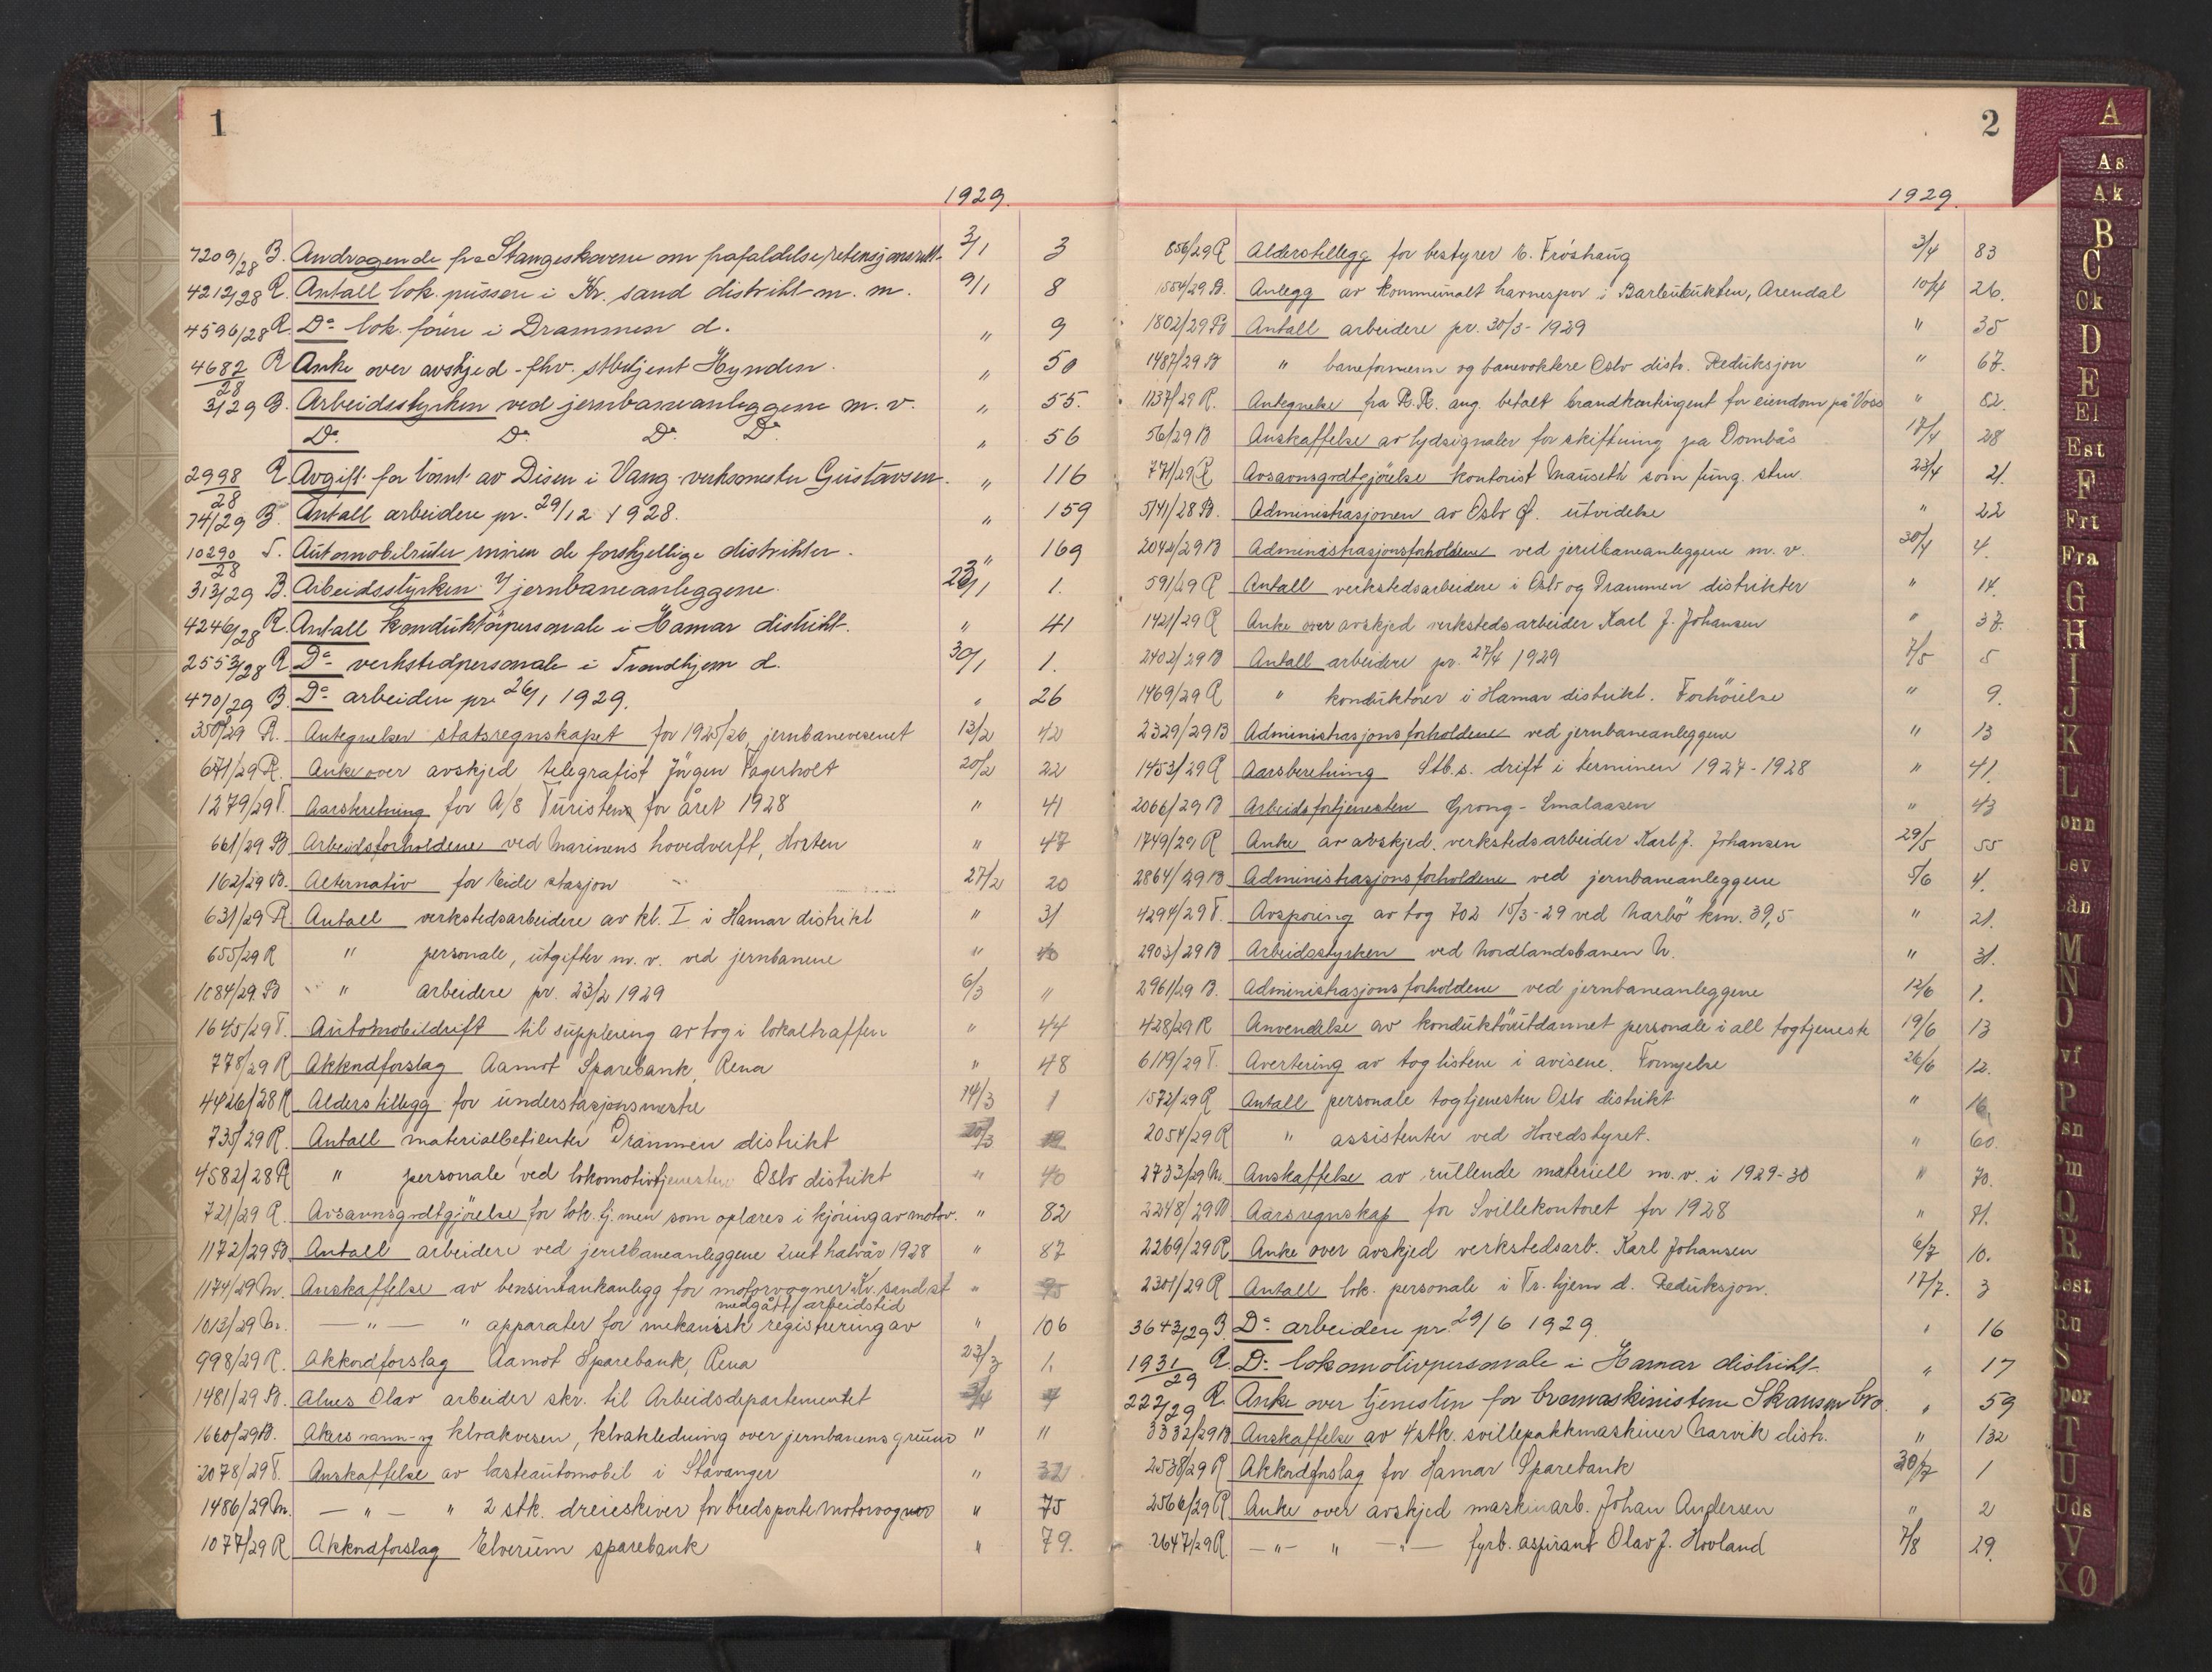 1
1929.
7209/28 B. Andragende fra Stangeskovene om frafaldelse retensjonsrett. 2/1 3
4212/28 R. Antall lok. pussere i Kr. sand distrikt m. m. 9/1 8
4596/28 R. Do lok. førere i Drammen d. " 9
4682/28 R Anke over avskjed - fhv. stbetjent Hynden. " 50
3/29 B. Arbeidsstyrken ved jernbaneanleggene m. v. " 55.
Do Do Do Do " 56
2998/28 R Avgift for tomt av Disen i Vang - verksmester Gustavsen. " 116
74/29 B. Antall arbeidere pr. 29/12 1928. " 159
10290/28 T. Automobilruter innen de forskjellige distrikter. " 169
313/29 B. Arbeidsstyrken v/ jernbaneanleggene. 23/1 1.
4246/28 R. Antall konduktörpersonale i Hamar distrikt. " 41
2553/28 R Do verkstedpersonale i Trondhjem d. 30/1 1.
470/29 B. Do arbeidere pr. 26/1 1929. " 26
350/29 R. Antegnelser statsregnskapet for 1925/26, jernbanevesenet 13/2 42
671/29 R. Anke over avskjed telegrafist Jörgen Fagerholt 20/2 22
1279/29 T. Aarsberetning for A/S Turisten for året 1928 " 41
661/29 B Arbeidsforholdene ved Marinens hovedverft, Horten " 47
162/29 B. Alternativ for Eide stasjon 27/2 20
631/29 R Antall verkstedsarbeidere av kl. I i Hamar distrikt " 31
655/29 R " personale, utgifter m. v. ved jernbanene " 40
1084/29 B " arbeidere pr. 23/2 1929 6/3 "
1645/29 T. Automobildrift til supplering av tog i lokaltraffen " 44
778/29 R Akkordforslag Aamot Sparebank, Rena " 48
4426/28 R Alderstillegg for understasjonsmestre 14/3 1
735/29 R. Antall materialbetjenter Drammen distrikt 20/3 19
4582/28 R " personale ved lokomotivtjenesten Oslo distrikt " 40
721/29 R. Avsavnsgodtgjörelse for lok.tj.men som oplæres i kjöring av motorv. " 82
1172/29 B Antall arbeidere ved jernbaneanleggene 2net halvår 1928 " 87
1174/29 M. Anskaffelse av bensintankanlegg for motorvogner Kr. sand st " 95
medgått arbeidstid
1013/29 M. — " — " apparater for mekanisk registrering av " 106
998/29 R. Akkordforslag Aamot Sparebank, Rena 23/3 1.
1481/29 B. Alnes Olav arbeider skr. til Arbeidsdepartementet 3/4 7
1660/29 B. Akers vann- og kloakvesen, kloakledning over jernbanens grunn " 11
2078/29 T. Anskaffelse av lasteautomobil i Stavanger " 32
1486/29 M. — " — " 2 stk. dreieskiver for bredsporte motorvogner " 75
1077/29 R Akkordforslag Elverum sparebank " 79.
2
1929.
856/29 R Alderstillegg for bestyrer E. Fröshaug 3/4 83
1554/29 B. Anlegg av kommunalt havnespor i Barbubukten, Arendal 10/4 26.
1802/29 B Antall arbeidere pr. 30/3 - 1929 " 35
1487/29 B " baneformenn og banevoktere Oslo distr. Reduksjon " 67.
1137/29 R. Antegnelse fra R.R. ang. betalt brandkontingent for eiendom på Voss " 82.
56/29 B Anskaffelse av lydsignaler for skiftning på Dombås 17/4 28
771/29 R Avsavnsgodtgjörelse kontorist Mauseth som fung. stm. 23/4 21.
5141/28 B. Administrasjonen av Oslo Ø. utvidelse " 22
2042/29 B Administrasjonsforholdene ved jernbaneanleggene m. v. 30/4 4.
591/29 R Antall verkstedsarbeidere i Oslo og Drammen distrikter " 14.
1421/29 R Anke over avskjed verkstedsarbeider Karl J. Johansen " 37.
2402/29 B Antall arbeidere pr. 27/4 1929 7/5 5
1469/29 R " konduktörer i Hamar distrikt. Forhöielse " 9.
2329/29 B Administrasjonsforholdene ved jernbaneanleggene " 13
1453/29 R Aarsberetning Stb.s. drift i terminen 1927-1928 " 41.
2066/29 B Arbeidsfortjenesten Grong - Smalaasen " 43
1749/29 R Anke av avskjed. verkstedsarbeider Karl J. Johansen 29/5 55
2864/29 B Administrasjonsforholdene ved jernbaneanleggene 5/6 4.
4294/29 T. Avsporing av tog 702 15/3-29 ved Narbö km. 39,5 " 21.
2903/29 B Arbeidsstyrken ved Nordlandsbanen N. " 31.
2961/29 B. Administrasjonsforholdene ved jernbaneanleggene 12/6 1.
428/29 R Anvendelse av konduktörutdannet personale i all togtjeneste 19/6 13
6119/29 T. Avertering av toglistene i avisene. Fornyelse 26/6 12.
1572/29 R Antall personale togtjenesten Oslo distrikt " 16.
2054/29 R " assistenter ved Hovedstyret. " 60.
2733/29 M. Anskaffelse av rullende materiell m. v. i 1929-30 " 70.
2248/29 B Aarsregnskap for Svillekontoret for 1928 " 71.
2269/29 R Anke over avskjed verkstedsarb. Karl Johansen 6/7 10.
2301/29 R Antall lok. personale i Tr. hjem d. Reduksjon. 17/7. 3
3643/29 B. Do arbeidere pr. 29/6 1929. " 16
1931/29 R. Do lokomotivpersonale i Hamar distrikt. " 17
222/29 R. Anke over tjenesten for bromaskinistene Skansen bro. " 59
3332/29 B Anskaffelse av 4 stk. svillepakkmaskiner Narvik distr. " 132
2538/29 R Akkordforslag for Hamar Sparebank 30/7 1
2566/29 R Anke over avskjed maskinarb. Johan Andersen " 2
2647/29 R. — " — " — " — fyrb. aspirant Olav J. Hovland 7/8 29.
A
As
Ak
B
C
Ck
D
E
El
Est
F
Frt
Fra
G
H
I
J
K
L
onn
Lev
Lån
M
N
O
vf
P
Psn
Pm
Q
R
Rest
Rn
S
Spor
T
U
Uds
V
XØ